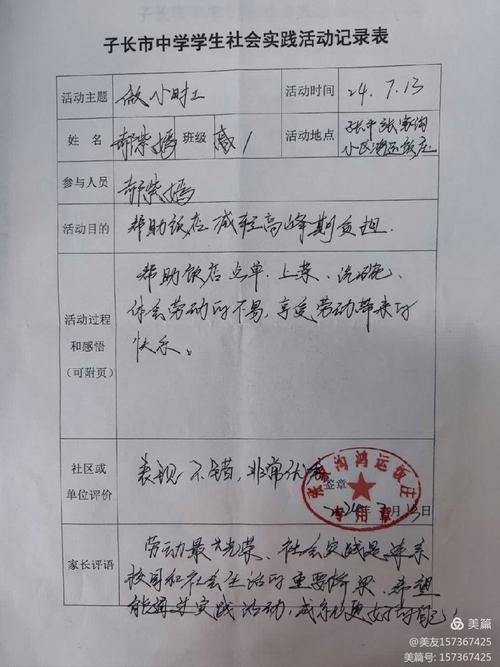 子长市中学学生社会实践活动记录表
活动主题 做小时工 活动时间 24.7.13
姓名 郝紫嫣 班级 高1 活动地点 张家沟
小区鸿运饭庄
参与人员 郝紫嫣
活动目的 帮助饭店减轻高峰期负担.
活动过程
和感悟
(可附页)
帮助饭店点单.上菜、洗碗、
体会劳动的不易,享受劳动带来的
快乐。
社区或
单位评价
表现不错,非常优秀
签章
张家沟鸿运饭庄
专用章
2024年7月13日
家长评语
劳动最光荣、社会实践是连系
校园和社会生活的重要桥梁.希望
能通过实践活动,成就更好的自己!
美篇
@美友157367425
美篇号: 157367425